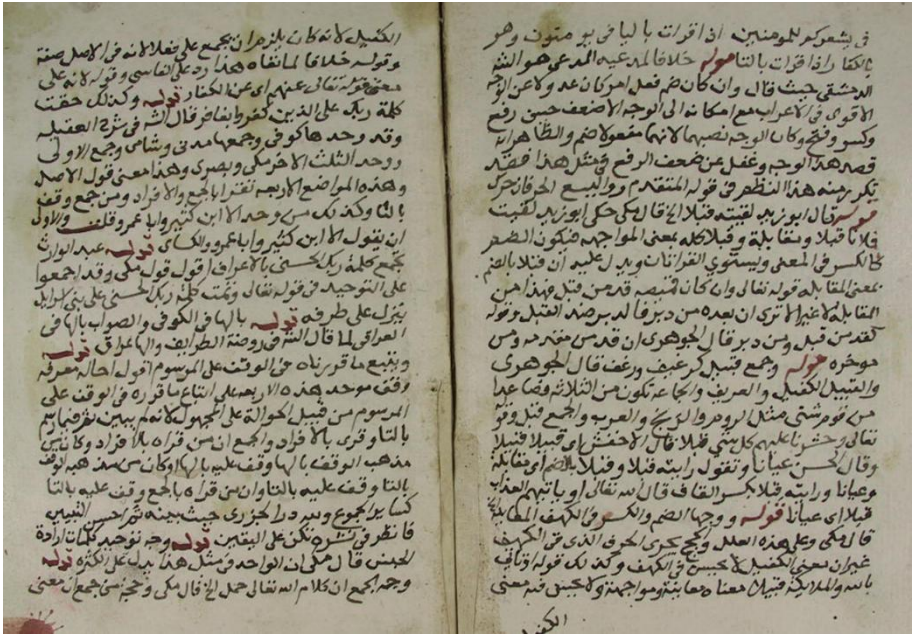 في يشعركم للمومنين ان اقرات باليا في يومنون وهو
بالكفار اذا قرات بالتا قوله خلافا لمدعيه المدعي هو الشه
الدمشقي حيث قال وان كان ضم فعل امر كان عدولا عن الوجه
الاقوى في الاعراب مع امكانه الى الوجه الاضعف حسن رفع
وكسر وفتح وكان الوجه نصبهما لانهما مفعولا ضم والظاهر انه
قصد هذا الوجه وغفل عن ضعف الرفع في مثل هذا
تكرر منه هذا النظم في قوله المتقدم
قوله قال ابو زيد لقيته قبلا الخ قال مكي حكى ابو زيد لقيت
فلانا قبلا ومقابلة وقبلا كله بمعنى المواجهه فتكون الضم
كالكسر في المعنى ويستوي القراتان ويدل عليه ان قبلا بالضم
بمعنى المقابله قوله تعالى وان كان قميصه قد من قبل فهذا من
المقابلة لا غير الا ترى ان بعده من دبر فالدبر ضد القبل وقوله
كقد من قبل ومن دبر قال الجوهري اي قد من مقدمه ومن
موخره قوله وجمع قبيل كرغيف ورغف قال الجوهري
والقبيل الكفيل والعريف والجماعة تكون من الثلاثة فصاعدا
من قوم شتى مثل الروم والزنج والعرب والجمع قبل وقوله
تعالى وحشرنا عليهم كل شي قبلا قال الاخفش اي قبيلا قبيلا
وقال الحسن عيانا وتقول رايته قبلا وقبلا بالضم اي مقابلة
وعيانا ورايته قبلا بكسر القاف قال الله تعالى او ياتيهم العذاب
قبلا اي عيانا قوله ووجها الضم والكسر في الكهف المقابلة
قال مكي وعلى هذه العلل والحجج يجري الحرف الذي في الكهف
غير ان معنى الكفيل لا يحسن في الكهف وكذلك قوله او تاتي
بالله والملائكة قبيلا معناه معاينة ومواجهة ولا يحسن فيه معنى
الكفيل
الكفيل لانه كان يلزم ان يجمع على فعلا لانه في الاصل صفة
وقوله خلافا لما نفاه هذا رد على الفاسي وقوله لانه على
معنى قوله تعالى عنهم اي عن الكفار قوله وكذلك حقت
كلمة ربك على الذين كفروا بغافر قال الشه في شرح العقيله
وقد وحدها كوفي وجمعها مدني وشامي وجمع الاولى
ووحد الثلث الاخر مكي وبصري وهذا معنى قول الاصل
وهذه المواضع الاربعه تقرا بالجمع والافراد ومن جمع وقف
بالتا وكذلك من وحد الا ابن كثير وابا عمرو قلت والاولى
ان يقول الا ابن كثير وابا عمرو والكسائي قوله عبد الوارث
بجمع كلمة ربك الحسنى بالاعراف اقول قول مكي وقد اجمعوا
على التوحيد في قوله تعالى وتمت كلمة ربك الحسنى على بني اسرايل
يتنزل على طرقه قوله بالها في الكوفي والصواب بالها في
العراقي لما قال الشه في روضة الطرايف والها عراق قوله
ويتبع ما قررناه في الوقف على المرسوم اقول احاله معرفه
وقف موحد هذه الاربعه على اتباع ما قرره في الوقف على
المرسوم من قبيل الحوالة على المجهول لانه لم يبين ثم فيما رسم
بالتا وقرى بالافراد والجمع ان من قراه بالافراد وكان من
مذهبه الوقف بالها وقف عليه بالها او كان من مذهبه الوقف
بالتا وقف عليه بالتا وان من قراه بالجمع وقف عليه بالتا
كساير الجموع ولله در الجزري حيث بينه ثم احسن التبيين
فانظر في نشره تكن على اليقين قوله وجه توحيد كلمات ارادة
الجنس قال مكي ان الواحد في مثل هذا يدل على الكثرة قوله
وجه الجمع ان كلام الله تعالى جمل الخ قال مكي وحجة من جمع ان معنى